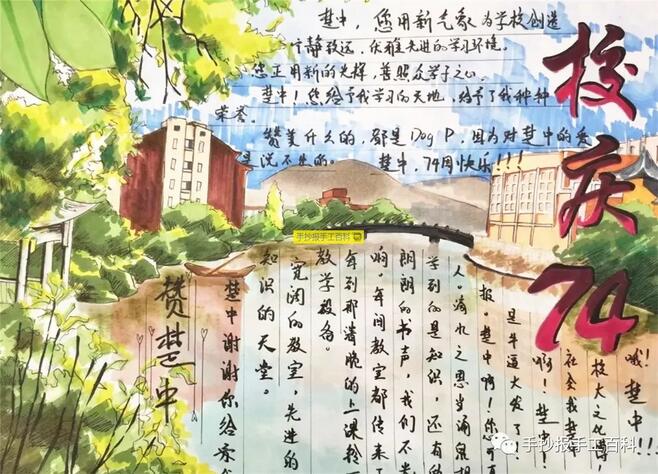 楚中,您用新气象为学校创造
宁静致远、优雅先进的学习环境。
您正用新的光辉,普照众学子之心。
楚中!您给予我学习的天地,给予了我种种
荣誉。
赞美什么的,都是Dog P,因为对楚中的爱
是说不出的。 楚中,74周快乐!!!
校庆74
手抄报手工百科
哦!楚中!!!
技大之化
社会我楚
啊!楚
是牛逼大发了
报。楚中啊!你
人。滴水之恩当涌泉相
学到的是知识,还有
朗朗的书声,我们不
响。车间教室都传来了
每到那清脆的上课铃
教学设备。
宽阔的教室,先进的
知识的天堂。
楚中谢谢你给
赞楚中
手抄报手工百科